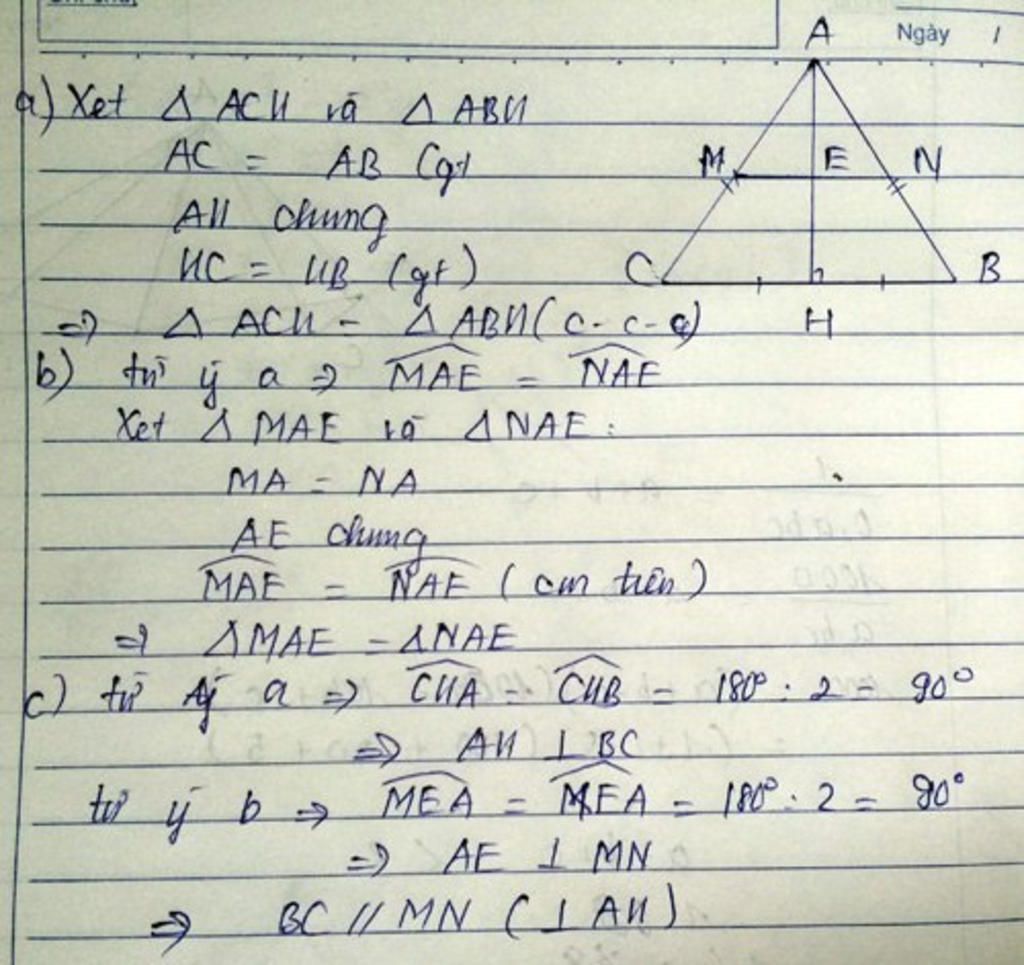 A
Ngày 1
a) Xet Δ ACH và Δ ABH
AC = AB (gt
M E N
AH chung
HC = HB (gt)
C B
=> Δ ACH = Δ ABH (c-c-c)
H
b) từ ý a => MAE = NAE
Xet Δ MAE và Δ NAE :
MA = NA
AE chung
MAE = NAE (cm trên)
=> ΔMAE = ΔNAE
c) từ ý a => CHA = CHB = 180° : 2 = 90°
=> AH ⊥ BC
từ ý b => MEA = MEA = 180° : 2 = 90°
=> AE ⊥ MN
=> BC // MN (⊥ AH)